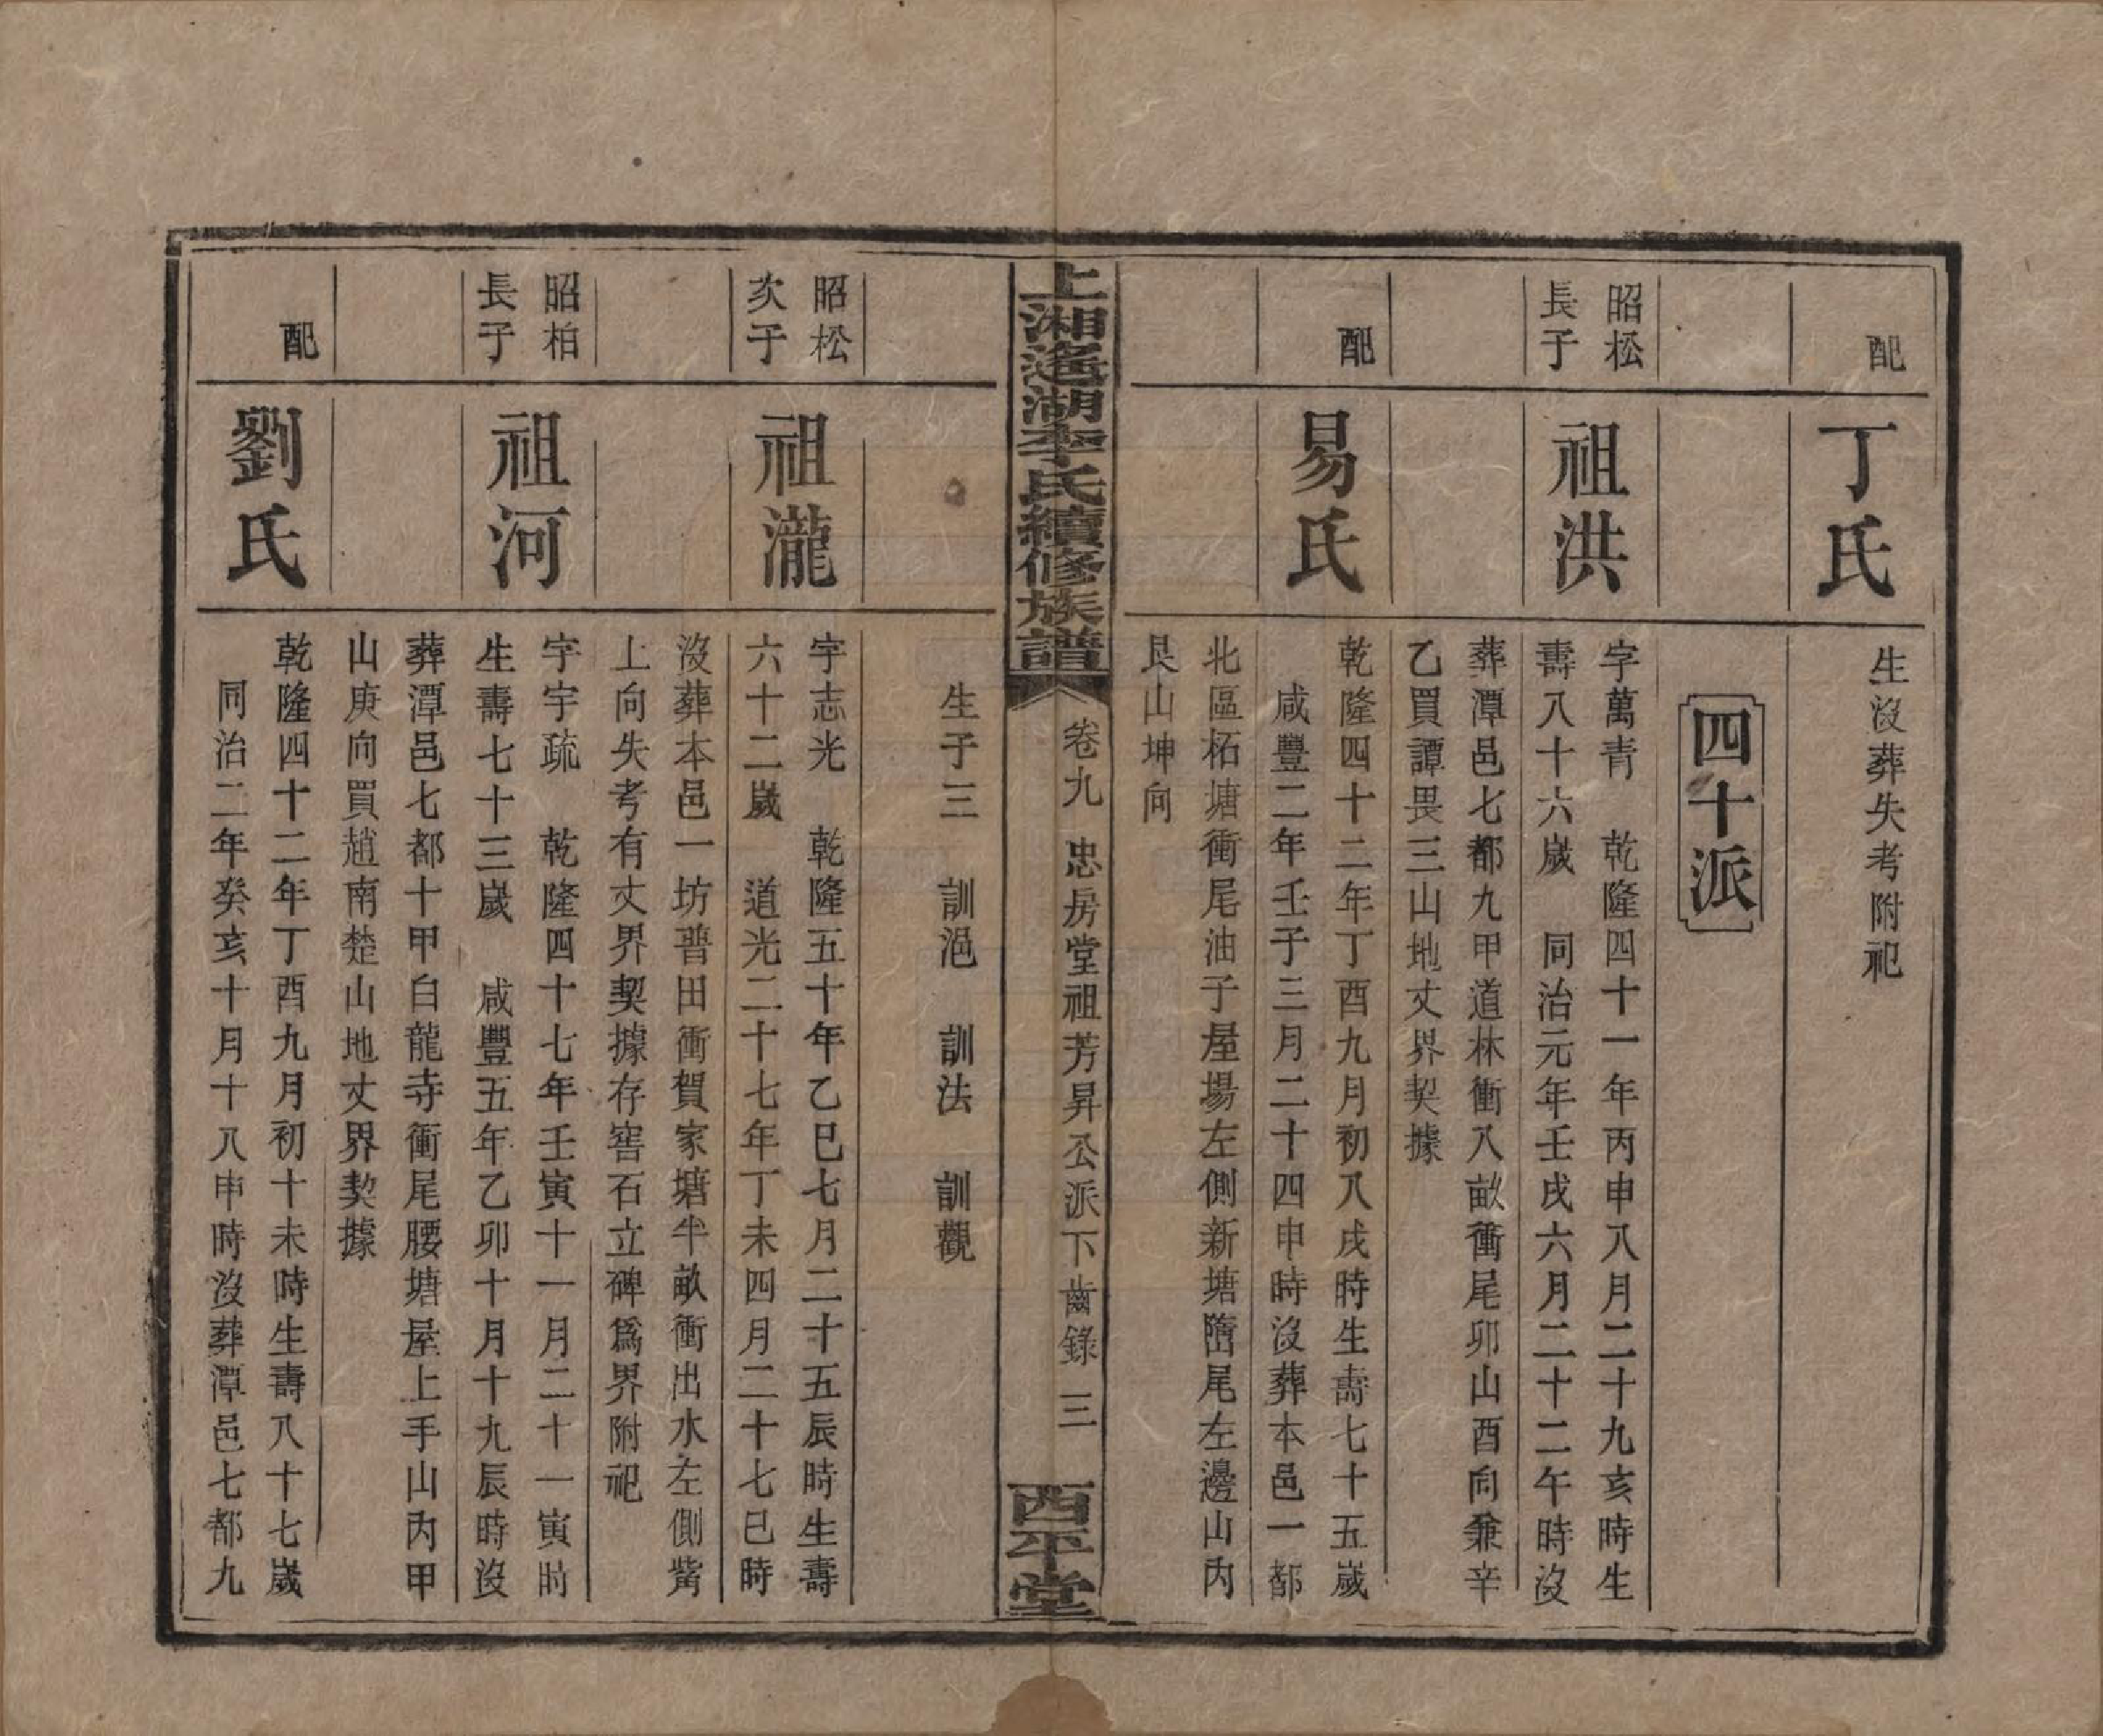 配
丁氏
生沒葬失考附祀
四十派
昭松
長子
祖洪
字萬青　乾隆四十一年丙申八月二十九亥時生
壽八十六歲　同治元年壬戌六月二十二午時沒
葬潭邑七都九甲道林衝八畝衝尾卯山酉向兼辛
乙買譚畏三山地丈界契據
配
易氏
乾隆四十二年丁酉九月初八戌時生壽七十五歲
咸豐二年壬子三月二十四申時沒葬本邑一都
北區柘塘衝尾油子屋場左側新塘墮尾左邊山內
艮山坤向
上湘遙湖李氏續修族譜
卷九　忠房堂祖芳昇公派下齒錄　三
西平堂
生子三　訓浥　訓法　訓觀
昭松
次子
祖瀧
字志光　乾隆五十年乙巳七月二十五辰時生壽
六十二歲　道光二十七年丁未四月二十七巳時
沒葬本邑一坊普田衝賀家塘半畝衝出水左側觜
上向失考有丈界契據存窖石立碑爲界附祀
昭柏
長子
祖河
字宇疏　乾隆四十七年壬寅十一月二十一寅時
生壽七十三歲　咸豐五年乙卯十月十九辰時沒
葬潭邑七都十甲白龍寺衝尾腰塘屋上手山內甲
山庚向買趙南楚山地丈界契據
配
劉氏
乾隆四十二年丁酉九月初十未時生壽八十七歲
同治二年癸亥十月十八申時沒葬潭邑七都九